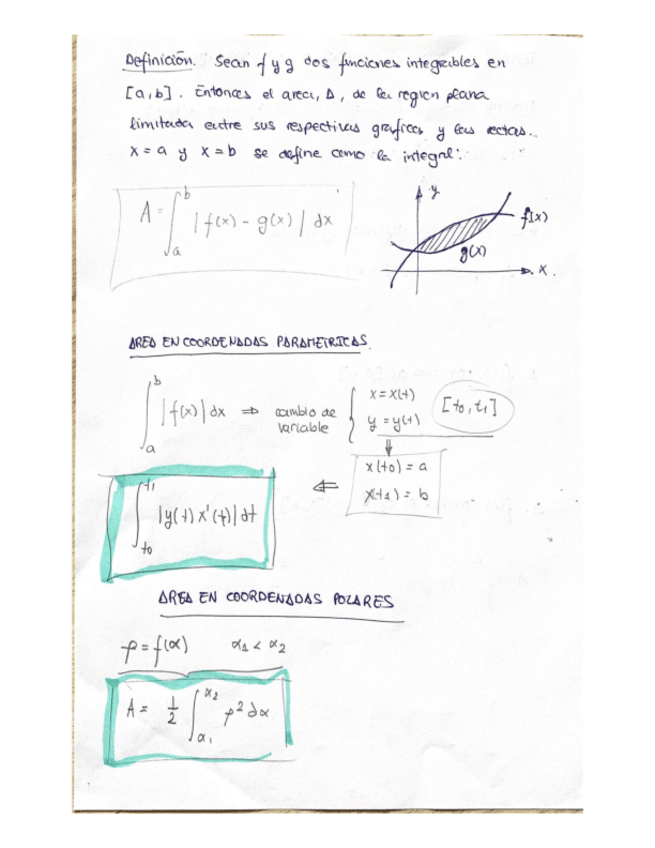 Definición. Sean f y g dos funciones integrables en
[a,b]. Entonces el area, A, de la region plana
limitada entre sus respectivas graficas y las rectas.
x = a y x = b se define como la integral:
A = ∫_a^b |f(x) - g(x)| dx
y
f(x)
g(x)
x.
AREA EN COORDENADAS PARAMETRICAS.
∫_a^b |f(x)| dx ⇒ cambio de variable { x = x(t) y = y(t) [t0, t1]
⇓
x(t0) = a
x(t1) = b
⇐
∫_t0^t1 |y(t) x'(t)| dt
AREA EN COORDENADAS POLARES
ρ = f(α) α1 < α2
A = 1/2 ∫_α1^α2 ρ² dα